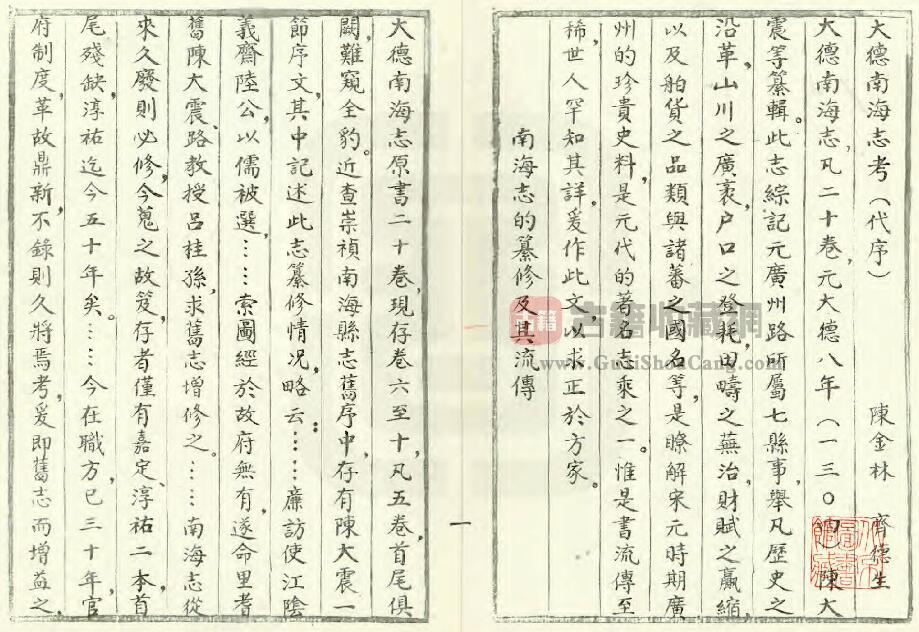 大德南海志考（代序） 陳金林 齊德生
大德南海志，凡二十卷，元大德八年（一三〇四）陳大
震等纂輯。此志綜記元廣州路所屬七縣事，舉凡歷史之
沿革，山川之廣袤，户口之登耗，田疇之蕪治，財賦之贏縮，
以及舶貨之品類與諸蕃之國名等，是瞭解宋元時期廣
州的珍貴史料，是元代的著名志乘之一。惟是書流傳至
稀，世人罕知其詳。爰作此文，以求正於方家。
南海志的纂修及其流傳
大德南海志原書二十卷，現存卷六至十，凡五卷，首尾俱
闕，難窺全豹。近查崇禎南海縣志舊序中，存有陳大震一
節序文，其中記述此志纂修情況，略云：……廉訪使江陰
義齋陸公，以儒被選，……索圖經於故府無有，遂命里耆
舊陳大震、路教授呂桂孫，求舊志增修之。……南海志從
來久廢則必修，今蒐之故笈，存者僅有嘉定、淳祐二本，首
尾殘缺，淳祐迄今五十年矣。……今在職方已三十年，官
府制度，革故鼎新，不錄則久將焉考，爰即舊志而增益之，
一
古籍
古籍收藏網
www.GuJiShouCang.com